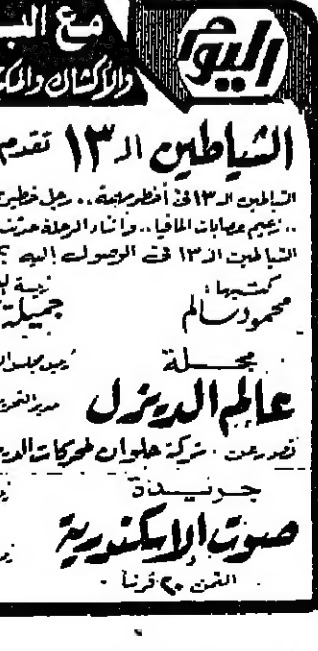 اليوم
مع
والأكشاك
الشياطين الـ ١٣ تقدم
الشياطين الـ ١٣ فى أخطر مهمة .. رجل
.. زعيم عصابات المافيا .. وأثناء الرحلة حدثت
الشياطين الـ ١٣ فى الوصول إليه ؟
كتبها :
محمود سالم
جميلة
مجلة
عالم الديزل
تصدر عن . شركة حلوان لمحركات
جريدة
صوت الإسكندرية
الثمن ٢٠ قرشاً .